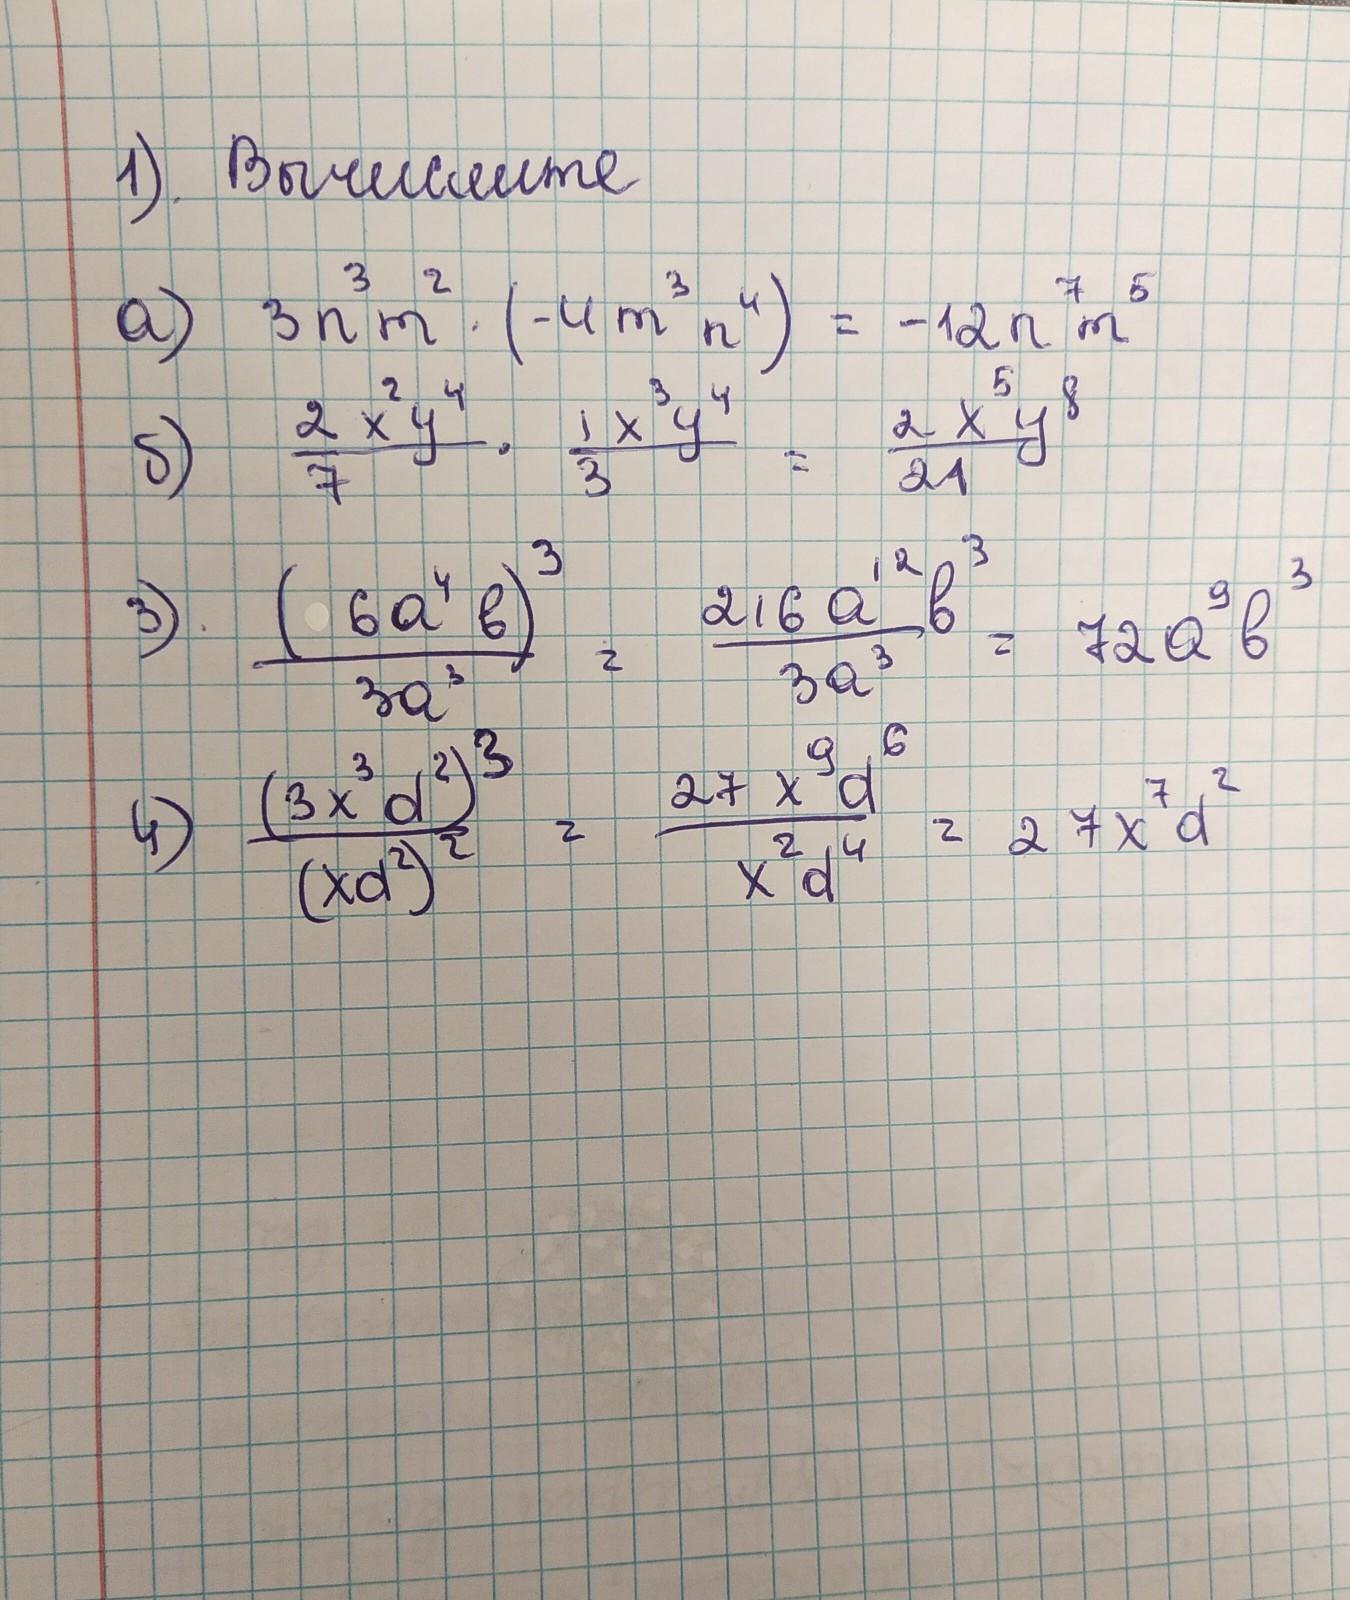 1). Вычислите
а) 3n³m² · (-4m³n⁴) = -12n⁷m⁵
б) 2x²y⁴/7 · 1x³y⁴/3 = 2x⁵y⁸/21
3). (6a⁴b)³/3a³ = 216a¹²b³/3a³ = 72a⁹b³
4) (3x³d²)³/(xd²)² = 27x⁹d⁶/x²d⁴ = 27x⁷d²